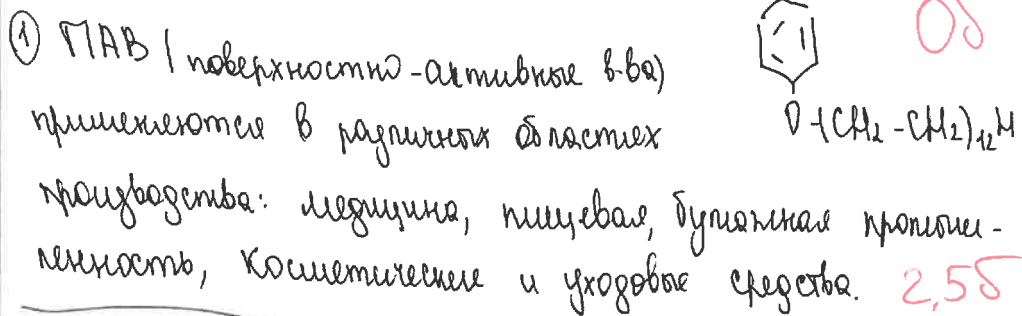 ① ПАВ (поверхностно-активные в-ва)
0б
применяются в различных областях
O-(CH2-CH2)12H
производства: медицина, пищевая, бумажная промыш-
ленность, косметические и уходовые средства. 2,5б